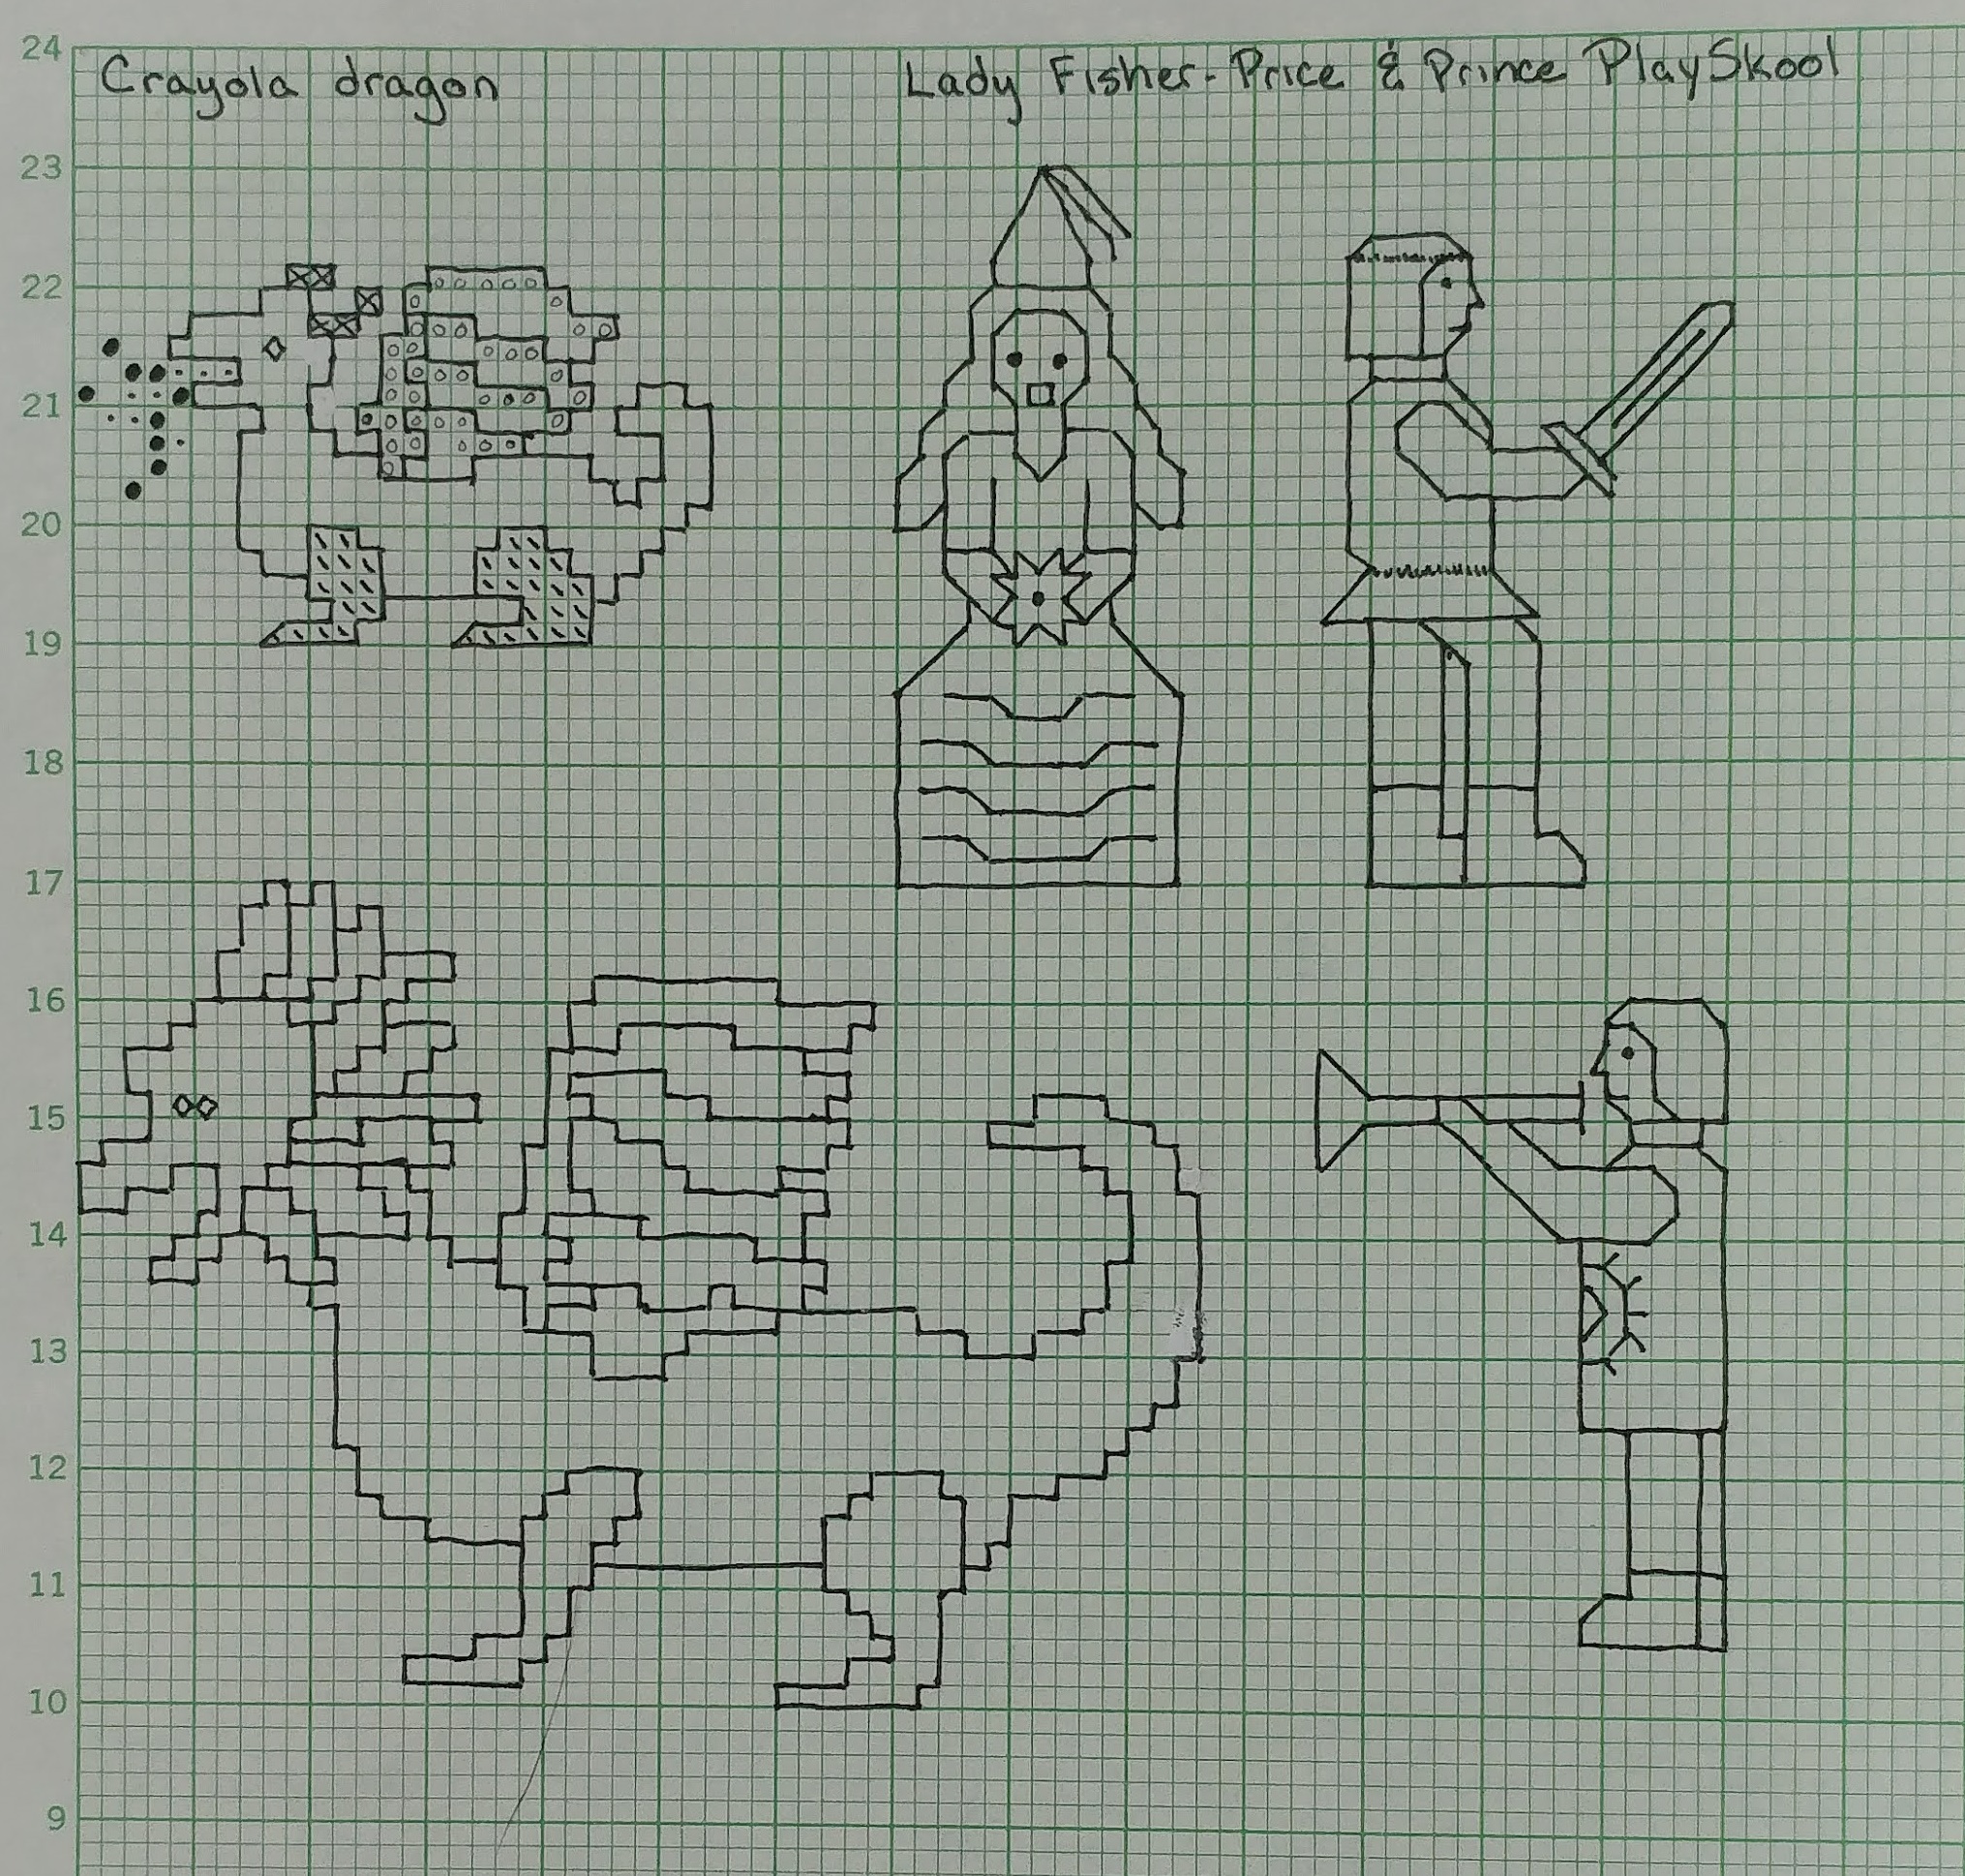 Crayola dragon
Lady Fisher-Price & Prince PlaySkool
24
23
22
21
20
19
18
17
16
15
14
13
12
11
10
9